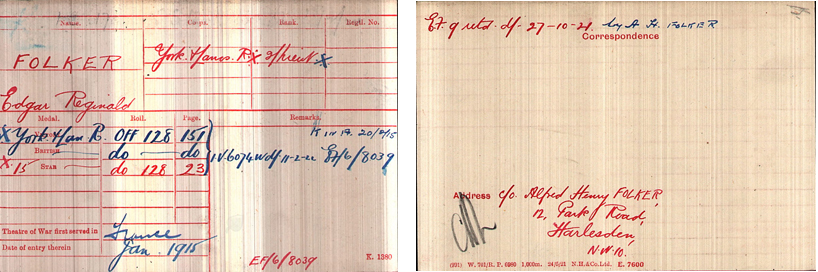 Name. Corps. Rank. Regtl. No.
FOLKER York. & Lancs. R. X 2/Lieut. X
Edgar Reginald
Medal. Roll. Page. Remarks.
X York & Lan R. OFF 128 151 K in A. 20/2/15
BRITISH do do IV 6074 W df 11-2-22 EF/6/8039
X 15 STAR do 128 23
Theatre of War first served in France
Date of entry therein Jan. 1915
EF/6/8039 K. 1380
EF 9 retd. df 27-10-21. by A. H. FOLKER
Correspondence
Address c/o. Alfred Henry FOLKER,
12, Park Road,
Harlesden,
N.W.10.
(931) W. 741/R. P. 6980 1,000m. 24/5/21 N.H.&Co.Ltd. E. 7600